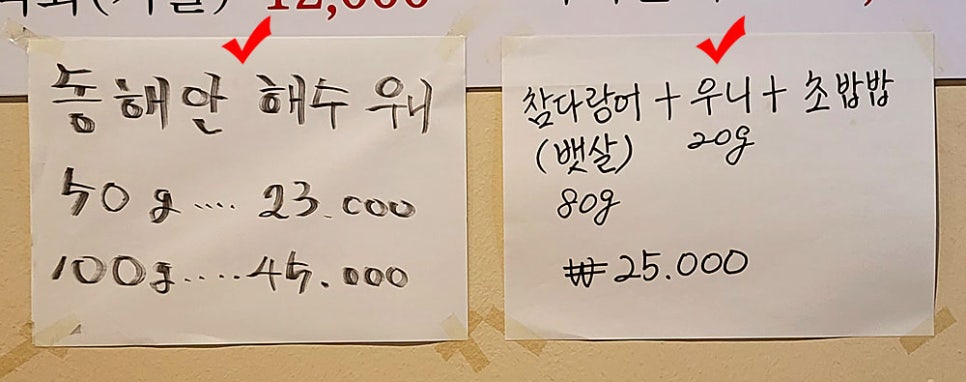 12,000
동해안 해수 우니
50g.... 23.000
100g.... 45.000
참다랑어 + 우니 + 초밥밥
(뱃살) 20g
80g
₩25.000